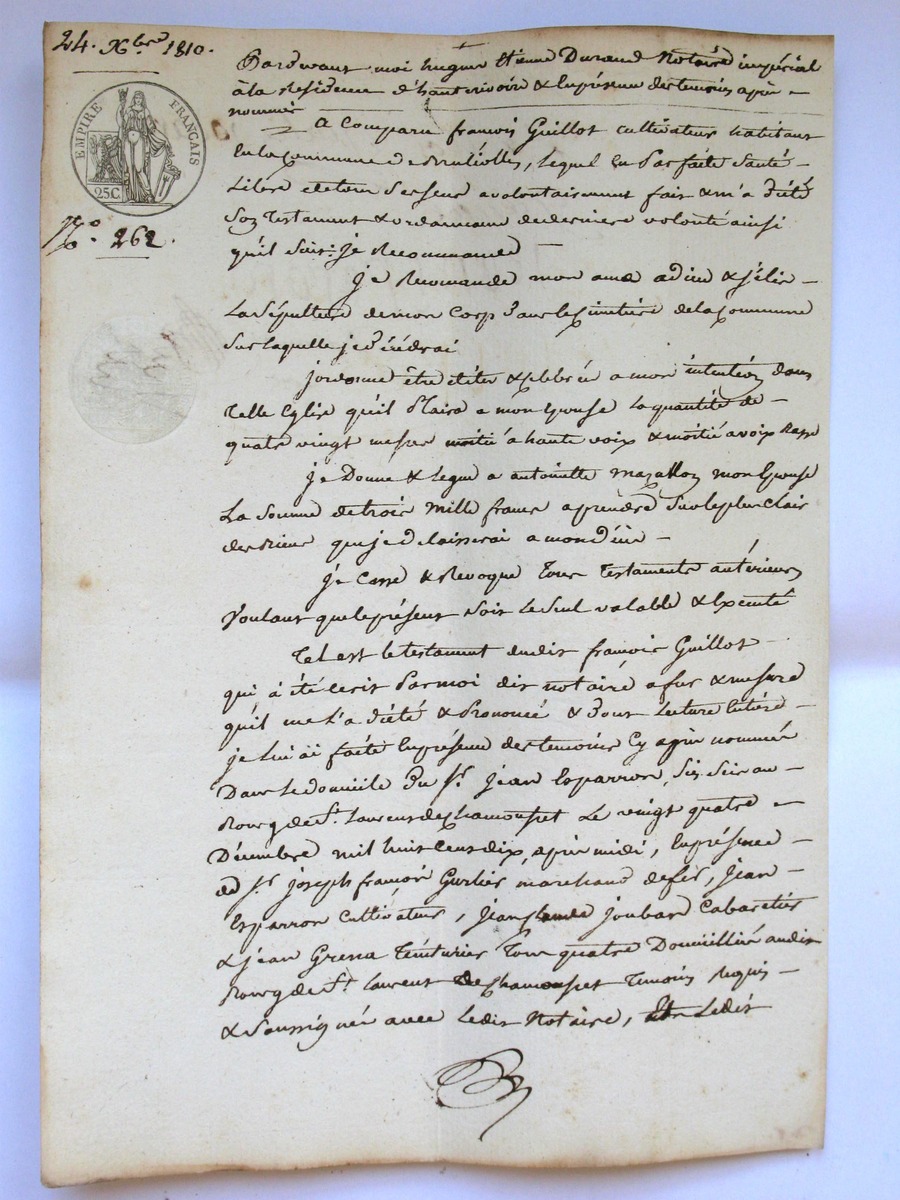 24. Xbre 1810.
EMPIRE FRANÇAIS
25C
No. 262.
Pardevant moi hugue Etienne Durand Notaire impérial
à la Résidence d'hauterivoire & En présence des temoins après
nommés
A Comparu françois Guillot cultivateur habitant
En la Commune de Brulliolles, lequel En parfaite Santé
Libre de tous Ses Sens a volontairement fait & m'a dicté
Son Testament & ordonnance de derniere volonté ainsi
qu'il Suit: je Recommande
je Recomande mon ame a dieu & j'élis
La Sépulture de mon Corp dans le Cimetiere de la Commune
Sur laquelle je décédrai
j'ordonne être dites & Célebrée a mon intention dans
telle Eglise qu'il Plaira a mon Epouse la quantité de
quatre vingt messes moitié à haute voix & moitié a voix Basse
je Donne & Legue a antoinette mazallon mon Epouse
La Somme de trois Mille francs a prendre Sur le plus Clair
des Biens que je delaisserai a mon décès
je Casse & Revoque Tous Testaments antérieurs
Voulant que le présent Soit le Seul valable & Executé
Tel est le testament dudit françois Guillot
qui à été écrit Par moi dit notaire a fur & mesure
qu'il me L'a dicté & Prononcé & dont Lecture Entiere
je lui ai faite En présence des temoins Cy après nommés
Dans Le domicile du Sr. jean Esparron, Sis Sur au
Bourg de St. Laurent de Chamousset Le vingt quatre
Décembre mil huit cent dix, après midi, En présence
de Sr. joseph françois marchand de fer, jean
Esparron Cultivateur, jean Claude joubard Cabaretier
& jean Grena Teinturier Tous quatre Domiciliés audit
Bourg de St. Laurent de Chamousset Temoins Requis
& Soussignés avec Ledit Notaire, Ledit